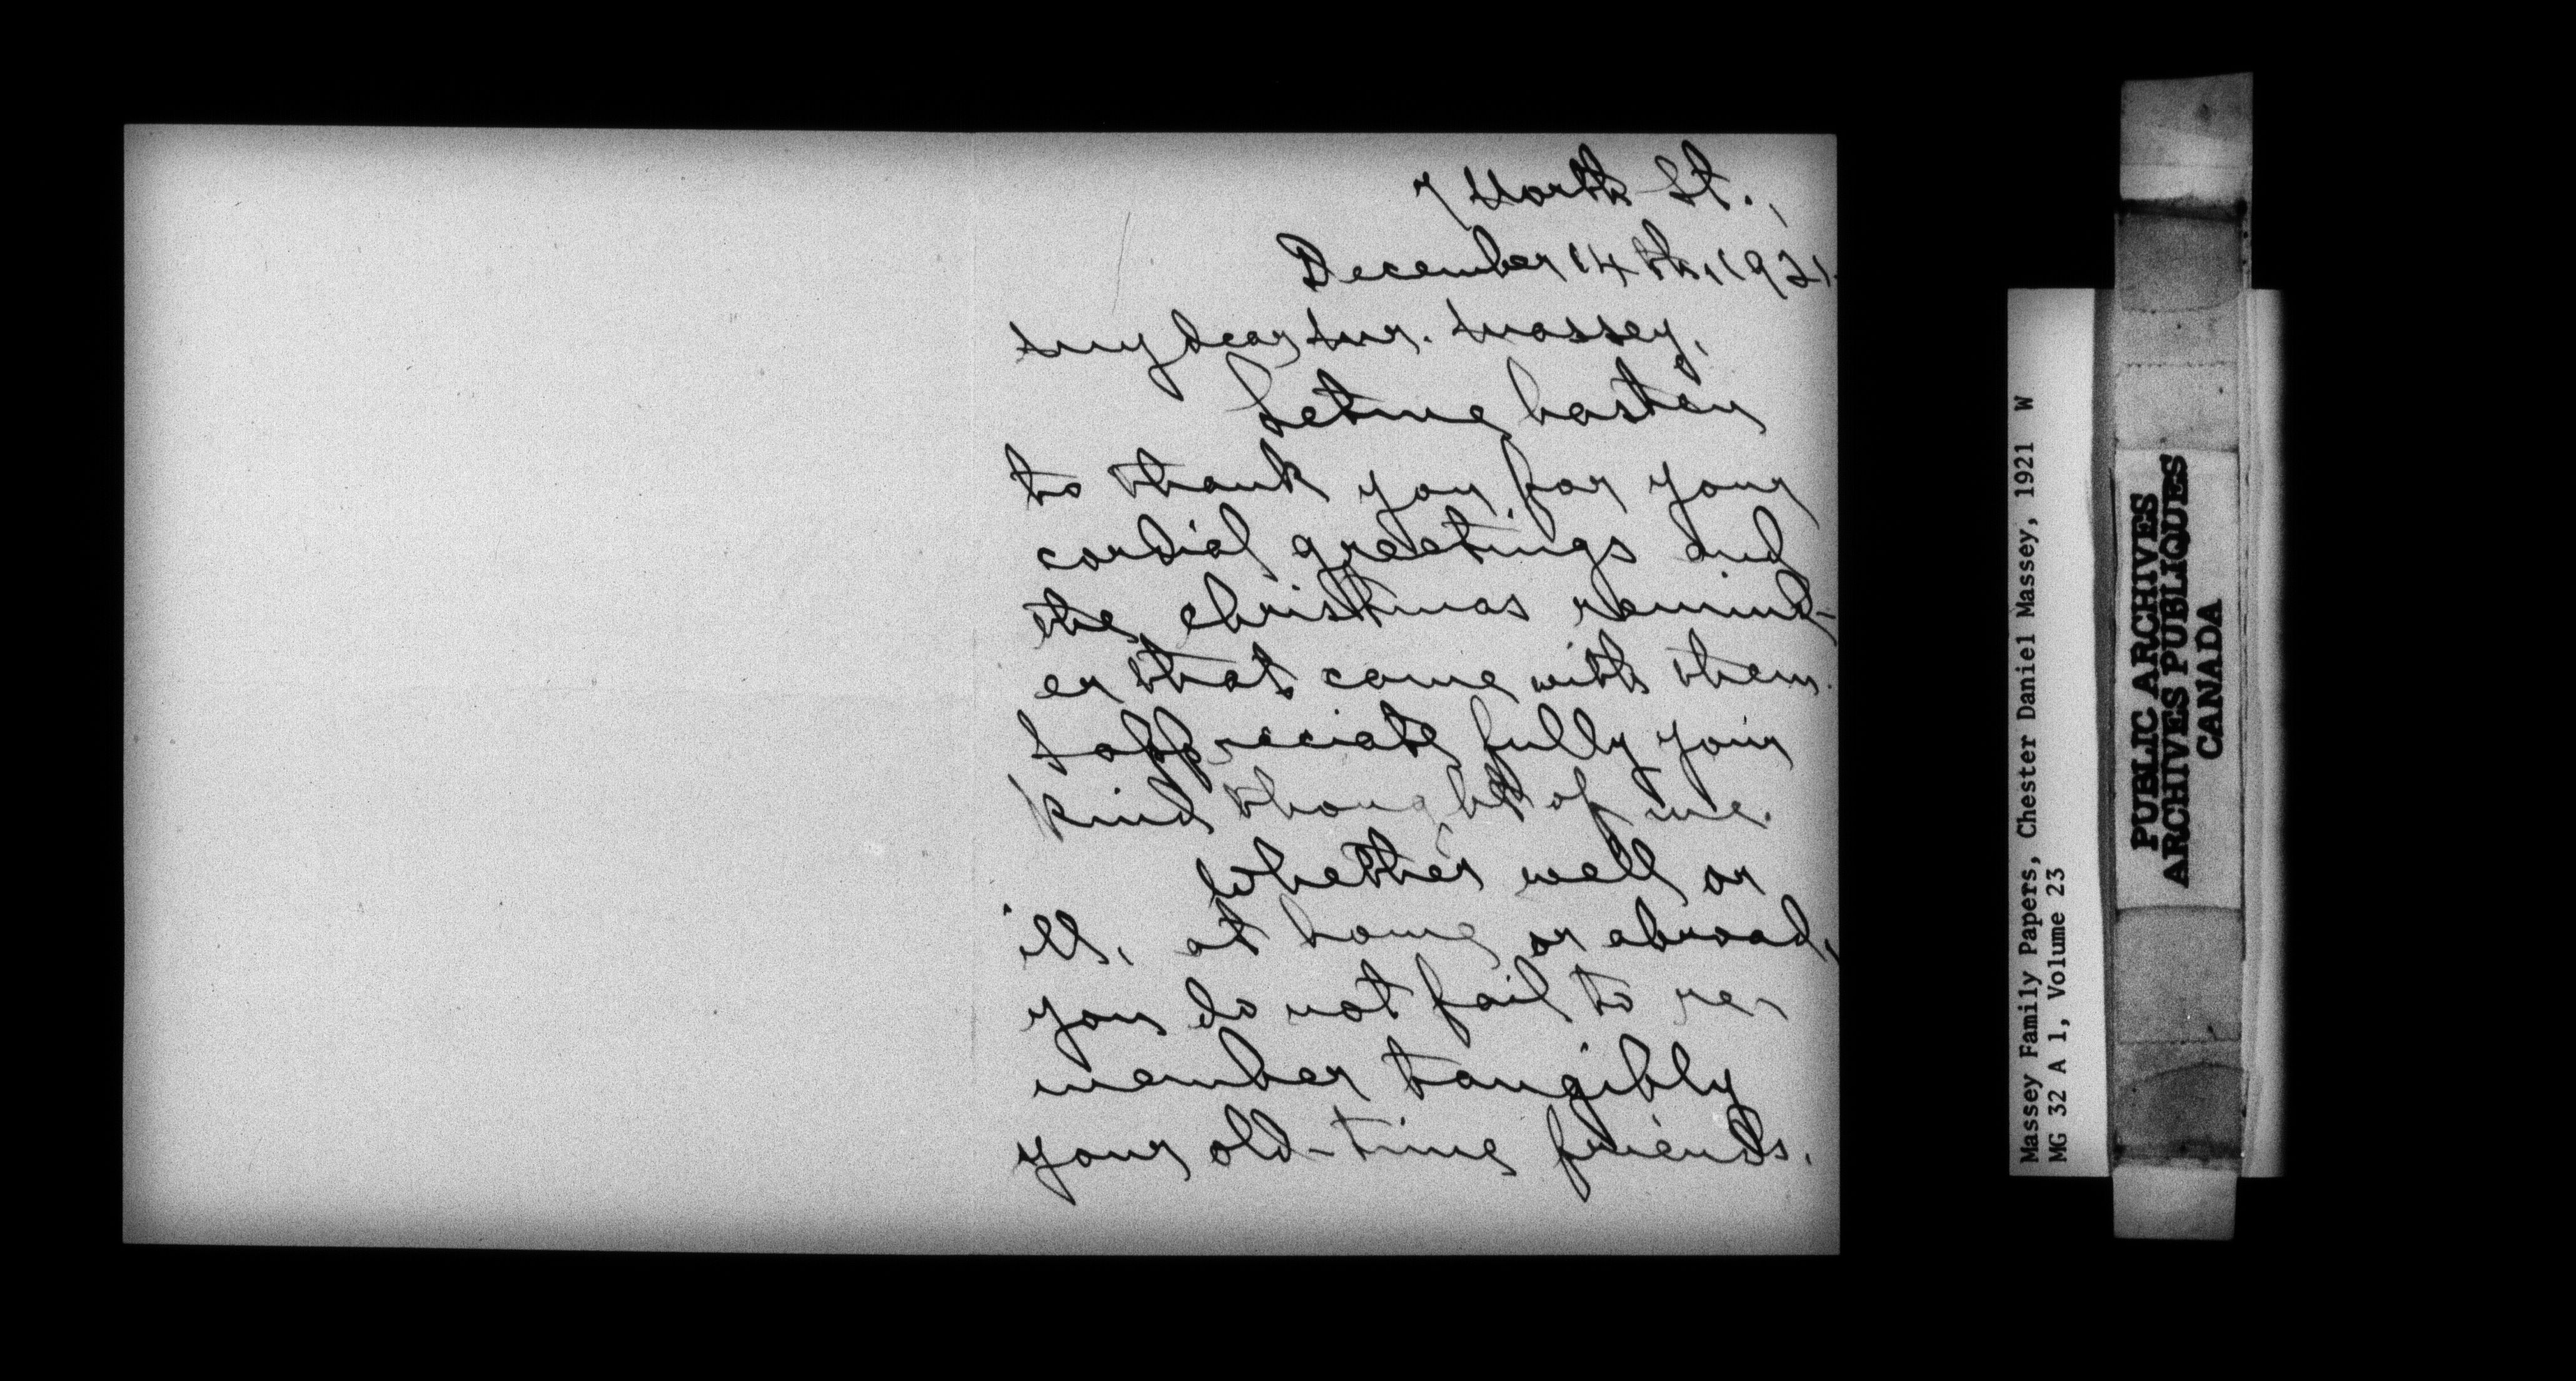 7 North St.,
December 14th, 1921.
My dear Mr. Massey,
Let me hasten
to thank you for your
cordial greetings and
the Christmas remind-
er that came with them.
I appreciate fully your
kind thought of me.
Whether well or
ill, at home or abroad,
you do not fail to re-
member tangibly
your old-time friends.
Massey Family Papers, Chester Daniel Massey, 1921 W
MG 32 A 1, Volume 23
PUBLIC ARCHIVES
ARCHIVES PUBLIQUES
CANADA